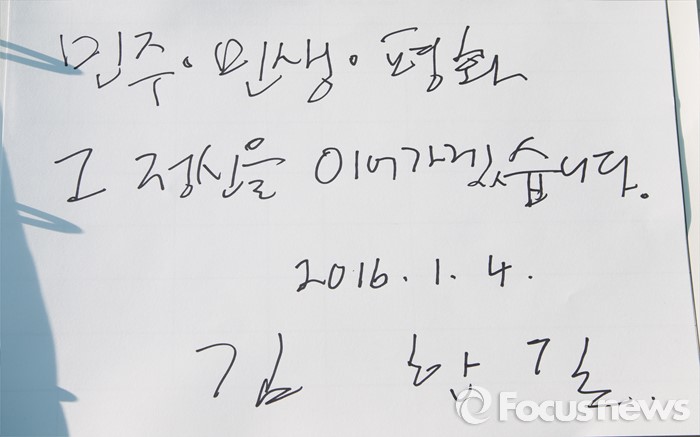 민주·민생·평화
그 정신을 이어가겠습니다.
2016. 1. 4.
김 한 길
Focusnews